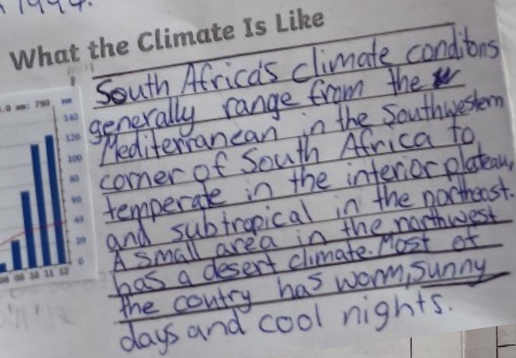 1994.
What the Climate Is Like
South Africa's climate conditons
generally range from the
Mediterranean in the Southwestern
corner of South Africa to
temperate in the interior plateau,
and subtropical in the northeast.
A small area in the northwest
has a desert climate. Most of
the coutry has worm, sunny
days and cool nights.
790
mm
140
120
100
80
60
40
20
0
08 09 10 11 12